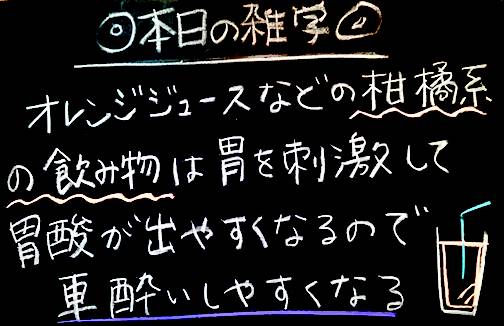 ◎本日の雑学◎
オレンジジュースなどの柑橘系
の飲み物は胃を刺激して
胃酸が出やすくなるので
車酔いしやすくなる